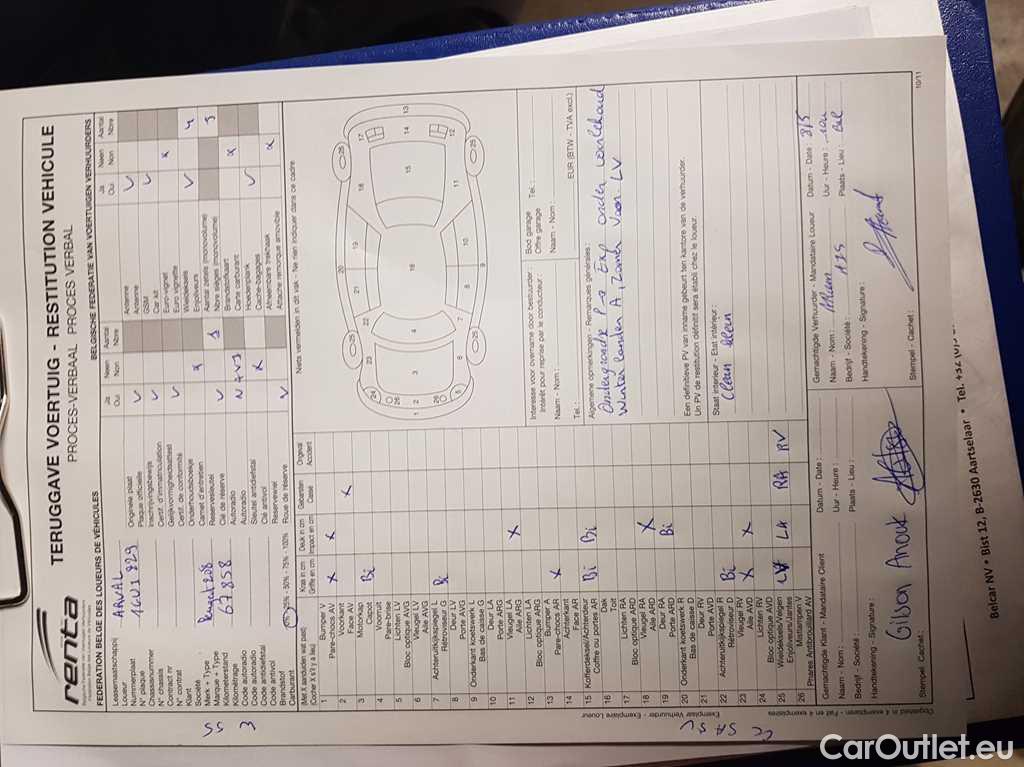 renta
TERUGGAVE VOERTUIG - RESTITUTION VEHICULE
PROCES-VERBAAL PROCES VERBAL
FEDERATION BELGE DES LOUEURS DE VÉHICULES
BELGISCHE FEDERATIE VAN VOERTUIGEN VERHUURDERS
Leasemaatschappij
Loueur
ARVAL
Nummerplaat
N° plaque
1GVJ829
Chassisnummer
N° chassis
Contract nr
N° contrat
Klant
Société
Merk + Type
Marque + Type
Peugeot 208
Kilometerstand
Kilométrage
67858
Code autoradio
Code autoradio
Code antidiefstal
Code antivol
Brandstof
Carburant
25% - 50% - 75% - 100%
Ja Neen Aantal
Oui Non Nbre
Originele plaat
Plaque officielle
Inschrijvingsbewijs
Certif. d'immatriculation
Gelijkvormigheidsattest
Certif. de conformité
Onderhoudsboekje
Carnet d'entretien
Reservesleutel
Clé de réserve
1
Autoradio
Autoradio
NAVI
Sleutel antidiefstal
Clé antivol
Reservewiel
Roue de réserve
Ja Neen Aantal
Oui Non Nbre
Antenne
Antenne
GSM
Car kit
Euro vignet
Euro vignette
Wieldeksels
Enjoliveurs
4
Aantal zetels (monovolume)
Nbre sièges (monovolume)
5
Brandstofkaart
Carte carburant
Hoedenplank
Cache-bagages
Afneembare trekhaak
Attache remorque amovible
(Met X aanduiden wat past)
(Cocher X s'il y a lieu)
Kras in cm
Griffe en cm
Deuk in cm
Impact en cm
Gebarsten
Cassé
Ongeval
Accident
1 Bumper V
Pare-chocs AV
X X
2 Voorkant
Face AV
X
3 Motorkap
Capot
Bi
4 Voorruit
Pare-brise
5 Lichten LV
Bloc optique AVG
6 Vleugel LV
Aile AVG
7 Achteruitkijkspiegel L
Rétroviseur G
Bi
8 Deur LV
Porte AVG
9 Onderkant koetswerk L
Bas de caisse G
10 Deur LA
Porte ARG
11 Vleugel LA
Aile ARG
X
12 Lichten LA
Bloc optique ARG
13 Bumper A
Pare-chocs AR
X
14 Achterkant
Face AR
15 Kofferdeksel/Achterdeur
Coffre ou portes AR
Bi Bi
16 Dak
Toit
17 Lichten RA
Bloc optique ARD
18 Vleugel RA
Aile ARD
X
19 Deur RA
Porte ARD
Bi
20 Onderkant koetswerk R
Bas de caisse D
21 Deur RV
Porte AVD
22 Achteruitkijkspiegel R
Rétroviseur D
Bi
23 Vleugel RV
Aile AVD
X X
24 Lichten RV
Bloc optique AVD
25 Wieldeksels/Velgen
Enjoliveurs/Jantes
LV LA RA RV
26 Mistlampen V
Phares Antibrouillard AV
Niets vermelden in dit vak - Ne rien indiquer dans ce cadre
Interesse voor overname door bestuurder:
Intérêt pour reprise par le conducteur :
Naam - Nom :
Tel. :
Bod garage
Offre garage
Tel. :
Naam - Nom :
EUR (BTW - TVA excl.)
Algemene opmerkingen - Remarques générales :
Een definitieve PV van inname gebeurt ten kantore van de verhuurder.
Un PV de restitution définitif sera établi chez le loueur.
Staat interieur - Etat intérieur :
Clean
Gemachtigde Klant - Mandataire Client
Datum - Date :
Naam - Nom :
Uur - Heure :
Bedrijf - Société :
Plaats - Lieu :
Handtekening - Signature :
Gibon Anouk
Stempel - Cachet :
Gemachtigde Verhuurder - Mandataire Loueur
Datum - Date : 3/5
Naam - Nom :
Uur - Heure :
Bedrijf - Société :
Plaats - Lieu :
Handtekening - Signature :
Stempel - Cachet :
Opgesteld in 4 exemplaren - Fait en 4 exemplaires
Exemplaar Verhuurder - Exemplaire Loueur
10/11
Belcar NV • Bist 12, B-2630 Aartselaar • Tel.
CarOutlet.eu